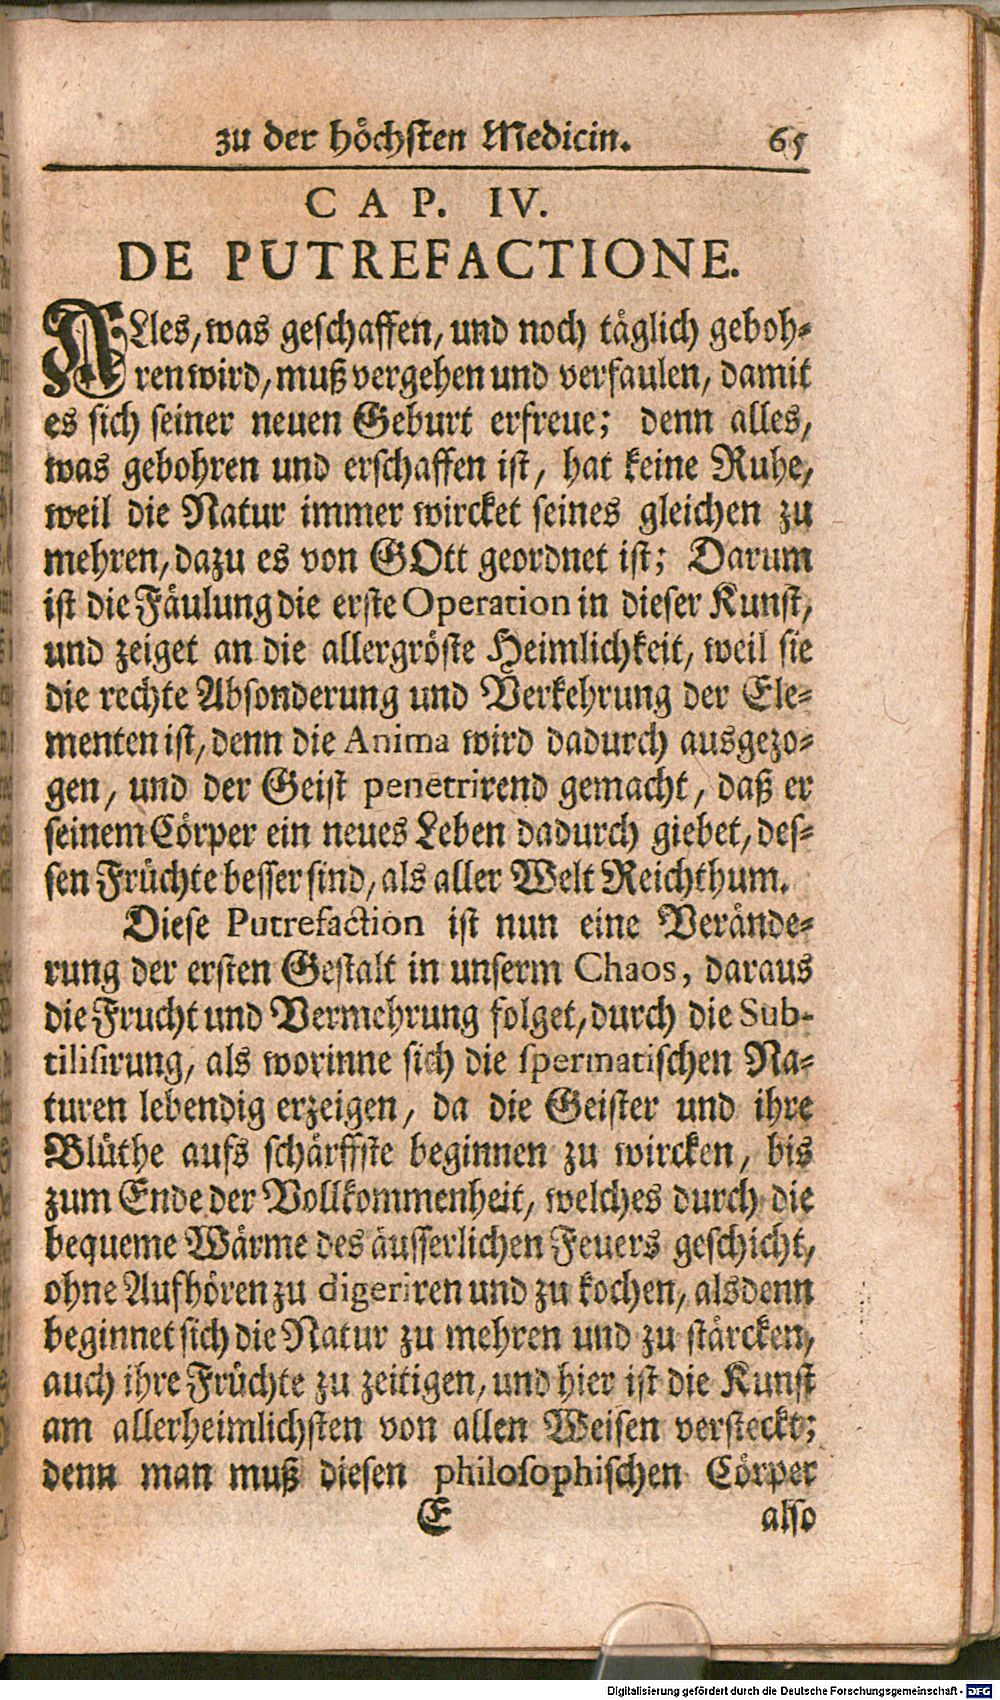 zu der höchsten Medicin. 65
CAP. IV.
DE PUTREFACTIONE.
ALles, was geschaffen, und noch täglich geboh-
ren wird, muß vergehen und verfaulen, damit
es sich seiner neuen Geburt erfreue; denn alles,
was gebohren und erschaffen ist, hat keine Ruhe,
weil die Natur immer wircket seines gleichen zu
mehren, dazu es von GOtt geordnet ist; Darum
ist die Fäulung die erste Operation in dieser Kunst,
und zeiget an die allergröste Heimlichkeit, weil sie
die rechte Absonderung und Verkehrung der Ele-
menten ist, denn die Anima wird dadurch ausgezo-
gen, und der Geist penetrirend gemacht, daß er
seinem Cörper ein neues Leben dadurch giebet, des-
sen Früchte besser sind, als aller Welt Reichthum.
Diese Putrefaction ist nun eine Verände-
rung der ersten Gestalt in unserm Chaos, daraus
die Frucht und Vermehrung folget, durch die Sub-
tilisirung, als worinne sich die spermatischen Na-
turen lebendig erzeigen, da die Geister und ihre
Blüthe aufs schärffste beginnen zu wircken, bis
zum Ende der Vollkommenheit, welches durch die
bequeme Wärme des äusserlichen Feuers geschicht,
ohne Aufhören zu digeriren und zu kochen, alsdenn
beginnet sich die Natur zu mehren und zu stärcken,
auch ihre Früchte zu zeitigen, und hier ist die Kunst
am allerheimlichsten von allen Weisen versteckt;
denn man muß diesen philosophischen Cörper
E also
Digitalisierung gefördert durch die Deutsche Forschungsgemeinschaft - DFG